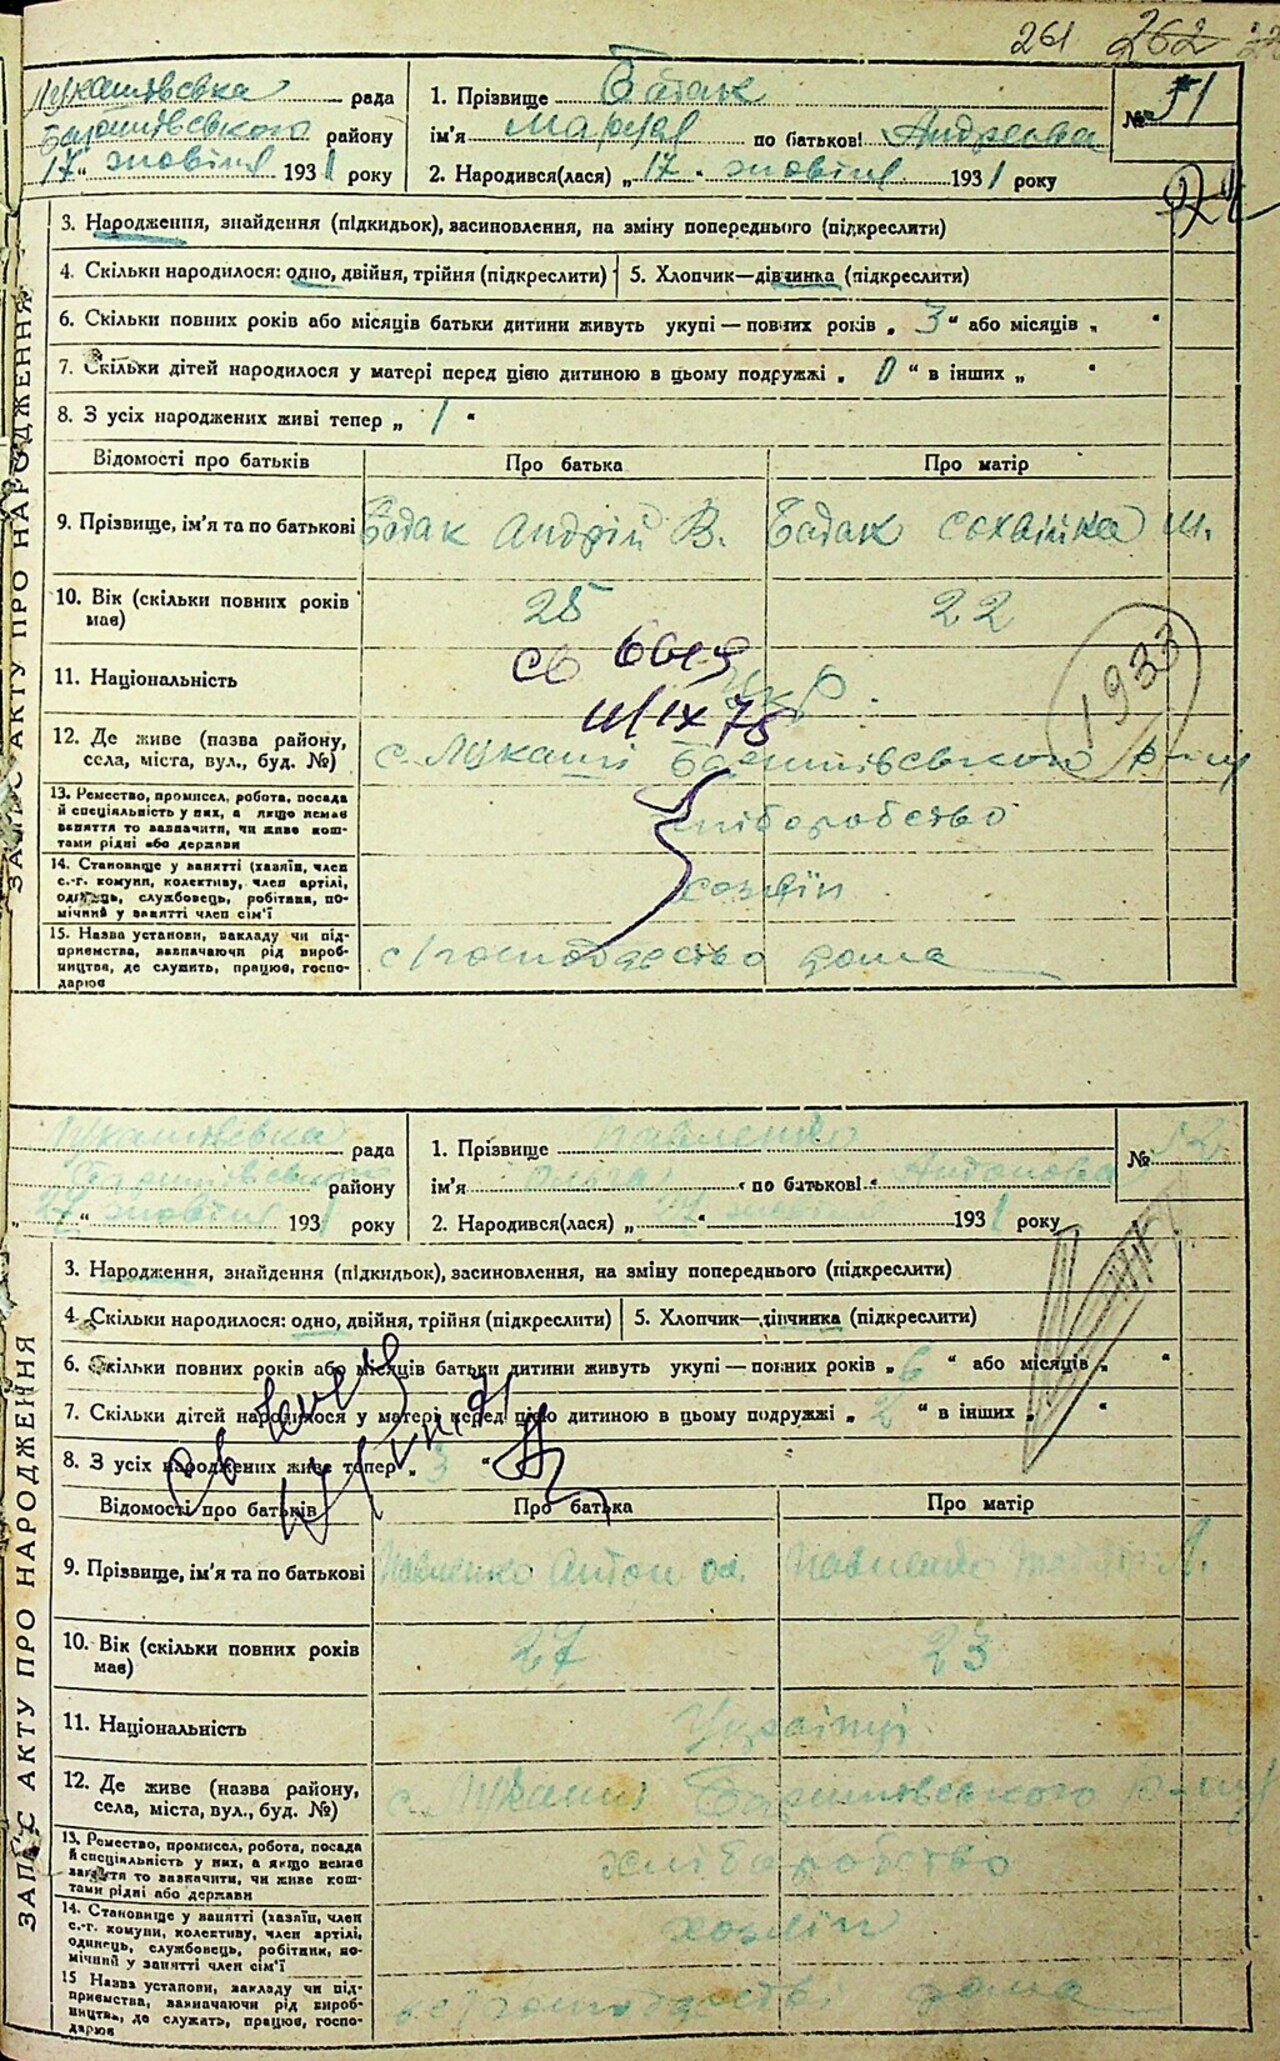 261 262
Лукашовська рада
Баришовського району
17 " жовтня 1931 року
1. Прізвище Бадак
ім'я Марія по батькові Андреєвна
2. Народився(лася) „ 17 " жовтня 1931 року
№ 51
ЗАПИС АКТУ ПРО НАРОДЖЕННЯ
3. Народження, знайдення (підкидьок), засиновлення, на зміну попереднього (підкреслити)
4. Скільки народилося: одно, двійня, трійня (підкреслити) 5. Хлопчик—дівчинка (підкреслити)
6. Скільки повних років або місяців батьки дитини живуть укупі — повних років „ 3 " або місяців „ "
7. Скільки дітей народилося у матері перед цією дитиною в цьому подружжі „ 0 " в інших „ "
8. З усіх народжених живі тепер „ 1 "
Відомості про батьків Про батька Про матір
9. Прізвище, ім'я та по батькові Бадак Андрій В. Бадак М.
10. Вік (скільки повних років має) 25 22
св
11. Національність Укр.
1933
ІХ 75
12. Де живе (назва району, села, міста, вул., буд. №) с. Лукаші Баришівського р-ну
13. Ремество, промисел, робота, посада й спеціяльність у них, а якщо немає заняття то зазначити, чи живе коштами рідні або держави хліборобство
14. Становище у занятті (хазяїн, член с.-г. комуни, колективу, член артілі, одинець, службовець, робітник, помічний у занятті член сім'ї хозяїн
15. Назва установи, закладу чи підприємства, зазначаючи рід виробництва, де служить, працює, господарює с/господарство дома
Лукашовська рада
Баришівського району
„ 27 " жовтня 1931 року
1. Прізвище Павленко
ім'я Ольга по батькові Антоновна
2. Народився(лася) „ 27 " жовтня 1931 року
№ 52
ЗАПИС АКТУ ПРО НАРОДЖЕННЯ
3. Народження, знайдення (підкидьок), засиновлення, на зміну попереднього (підкреслити)
4. Скільки народилося: одно, двійня, трійня (підкреслити) 5. Хлопчик—дівчинка (підкреслити)
6. Скільки повних років або місяців батьки дитини живуть укупі — повних років „ 6 " або місяців „ "
7. Скільки дітей народилося у матері перед цією дитиною в цьому подружжі „ 2 " в інших „ "
8. З усіх народжених живі тепер „ 3 "
Відомості про батьків Про батька Про матір
9. Прізвище, ім'я та по батькові Павленко Антон Павленко Л.
10. Вік (скільки повних років має) 27 23
11. Національність Українці
12. Де живе (назва району, села, міста, вул., буд. №) с. Лукаші Баришовського р-ну
13. Ремество, промисел, робота, посада й спеціяльність у них, а якщо немає заняття то зазначити, чи живе коштами рідні або держави хліборобство
14. Становище у занятті (хазяїн, член с.-г. комуни, колективу, член артілі, одинець, службовець, робітник, помічний у занятті член сім'ї хозяїн
15 Назва установи, закладу чи підприємства, зазначаючи рід виробництва, де служить, працює, господарює в с/господарстві дома